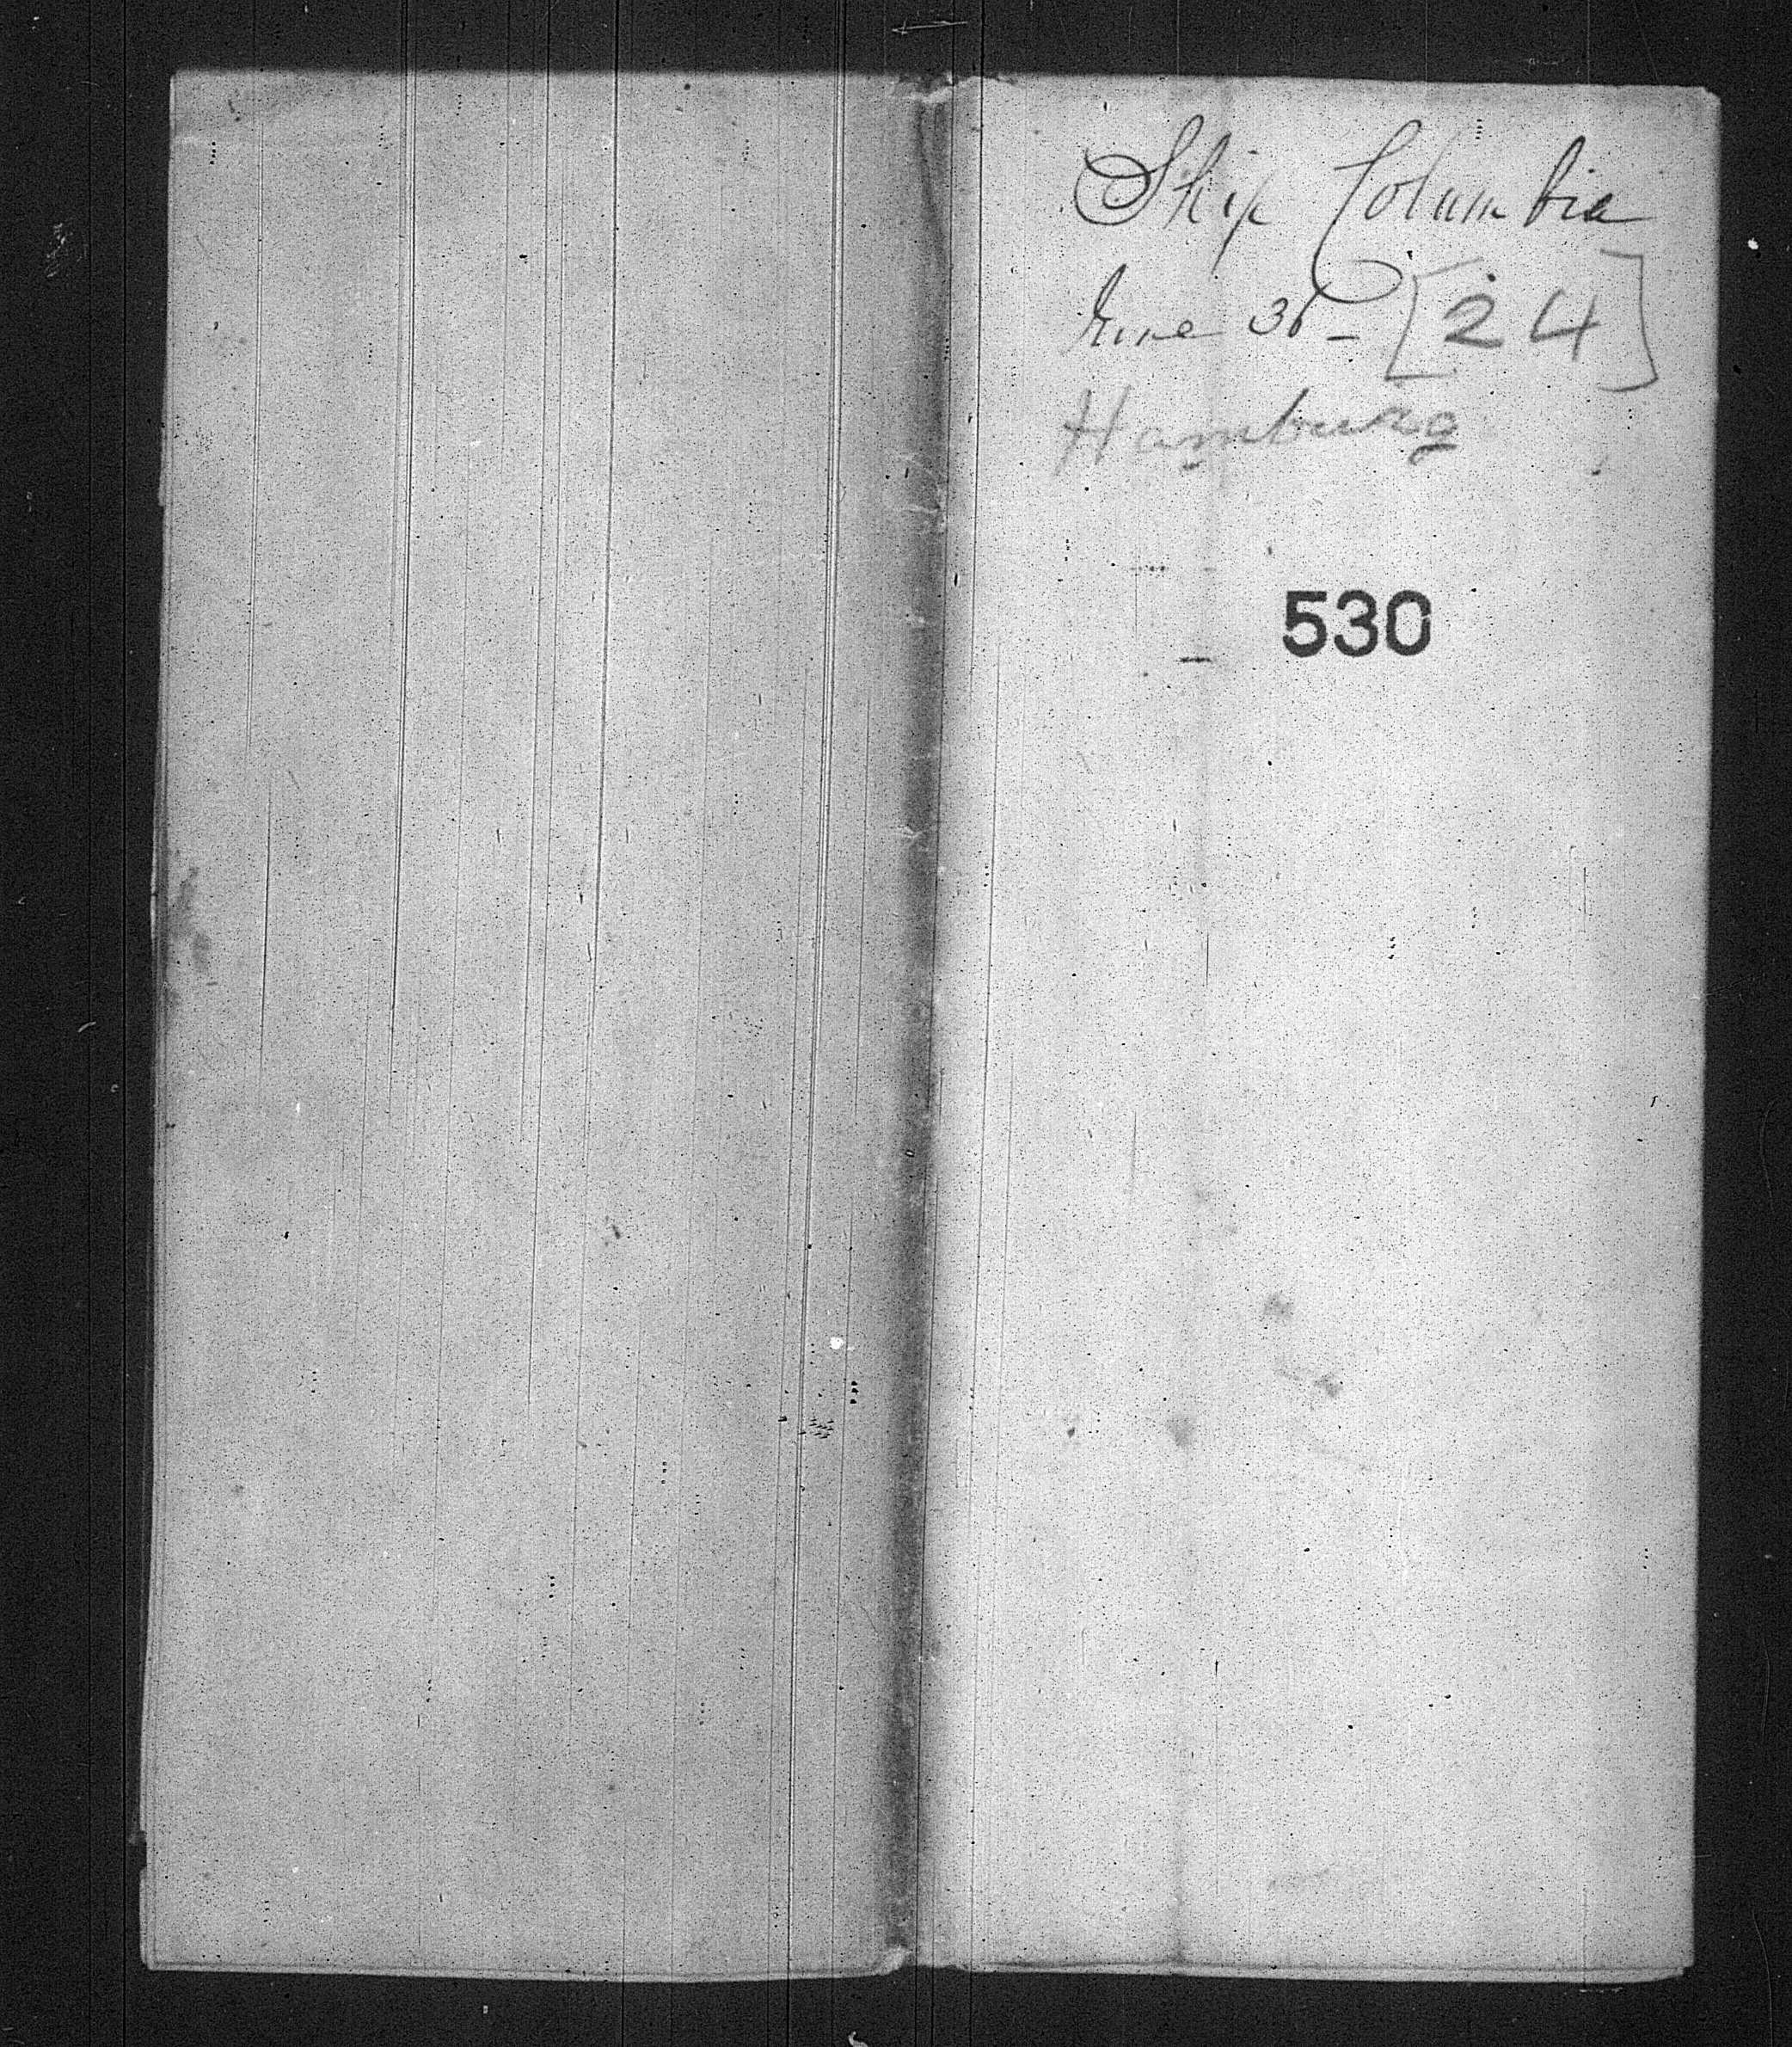 Ship Columbia
June 30 - [24]
Hamburg
530